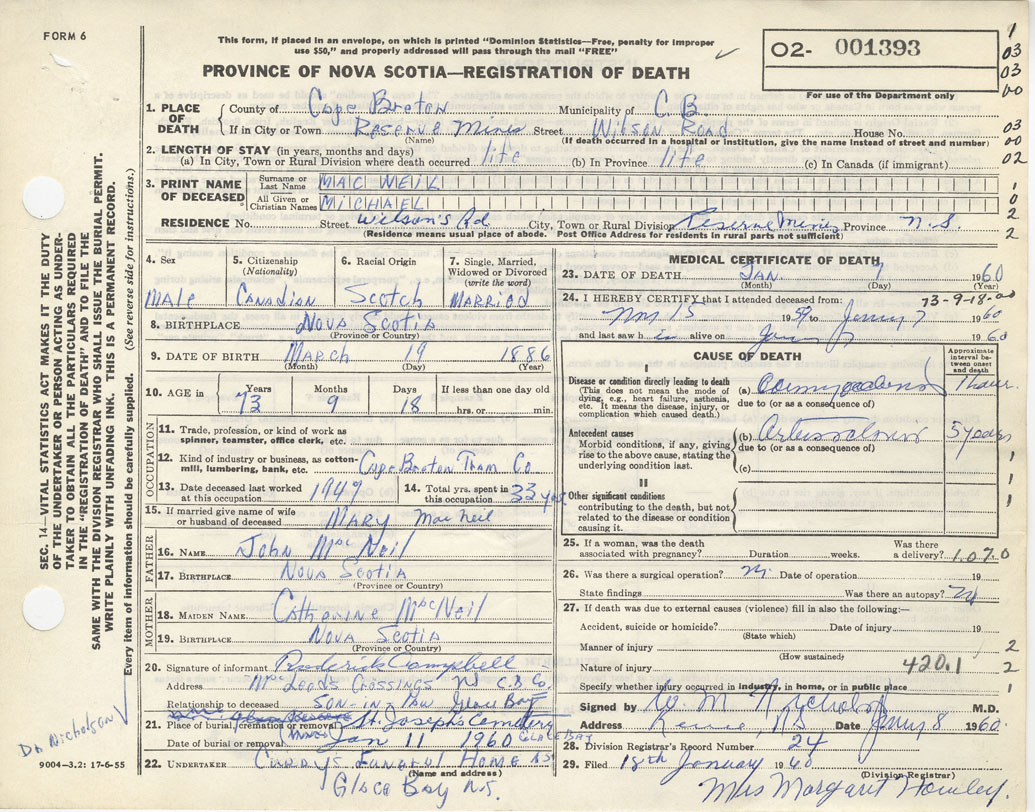 FORM 6
This form, if placed in an envelope, on which is printed "Dominion Statistics—Free, penalty for improper
use $50," and properly addressed will pass through the mail "FREE"
PROVINCE OF NOVA SCOTIA—REGISTRATION OF DEATH
02- 001393
For use of the Department only
1
03
03
00
03
00
02
1
0
2
2
1. PLACE OF DEATH
County of Cape Breton Municipality of C. B.
If in City or Town Reserve Mines Street Wilson Road House No.
(Name) (If death occurred in a hospital or institution, give the name instead of street and number)
2. LENGTH OF STAY (in years, months and days)
(a) In City, Town or Rural Division where death occurred life (b) In Province life (c) In Canada (if immigrant)
3. PRINT NAME OF DECEASED
Surname or Last Name MAC NEIL
All Given or Christian Names MICHAEL
RESIDENCE No. Street Wilson's Rd City, Town or Rural Division Reserve Mines Province N.S.
(Residence means usual place of abode. Post Office Address for residents in rural parts not sufficient)
4. Sex Male
5. Citizenship (Nationality) Canadian
6. Racial Origin Scotch
7. Single, Married, Widowed or Divorced (write the word) Married
8. BIRTHPLACE Nova Scotia
(Province or Country)
9. DATE OF BIRTH March 19 1886
(Month) (Day) (Year)
10. AGE in Years 73 Months 9 Days 18 If less than one day old hrs. or min.
OCCUPATION
11. Trade, profession or kind of work as spinner, teamster, office clerk, etc.
12. Kind of industry or business, as cotton-mill, lumbering, bank, etc. Cape Breton Tram Co
13. Date deceased last worked at this occupation 1947
14. Total yrs. spent in this occupation 33 yrs.
15. If married give name of wife or husband of deceased Mary MacNeil
FATHER
16. NAME John MacNeil
17. BIRTHPLACE Nova Scotia
(Province or Country)
MOTHER
18. MAIDEN NAME Catharine MacNeil
19. BIRTHPLACE Nova Scotia
(Province or Country)
20. Signature of informant Roderick Campbell
Address McLeods Crossings C.B. Co.
Relationship to deceased Son-in-Law Glace Bay
21. Place of burial, cremation or removal St. Josephs Cemetery
GLACE BAY
Date of burial or removal Jan 11 1960
22. UNDERTAKER Currys Funeral Home
(Name and address)
Glace Bay N.S.
MEDICAL CERTIFICATE OF DEATH
23. DATE OF DEATH JAN. 7 1960
(Month) (Day) (Year)
73-9-18-00
24. I HEREBY CERTIFY that I attended deceased from:
15 1959 to 7 1960
and last saw h im alive on 1960
CAUSE OF DEATH
Approximate interval between onset and death
I
Disease or condition directly leading to death
(This does not mean the mode of dying, e.g., heart failure, asthenia, etc. It means the disease, injury, or complication which caused death.)
(a) 1 hour.
due to (or as a consequence of)
Antecedent causes
Morbid conditions, if any, giving rise to the above cause, stating the underlying condition last.
(b) 5 years
due to (or as a consequence of)
(c)
II
Other significant conditions
contributing to the death, but not related to the disease or condition causing it.
1
1
1
25. If a woman, was the death associated with pregnancy? Duration weeks. Was there a delivery? 1070
26. Was there a surgical operation? Date of operation 19
State findings Was there an autopsy?
27. If death was due to external causes (violence) fill in also the following:—
Accident, suicide or homicide? Date of injury 19
(State which)
Manner of injury 2
(How sustained)
Nature of injury 420.1 2
Specify whether injury occurred in industry, in home, or in public place 1
Signed by M. Nicholson M.D.
Address Reserve, NS Date 8 1960.
28. Division Registrar's Record Number 24
29. Filed 18th January 1960
(Division Registrar)
Mrs Margaret Howley.
SEC. 14—VITAL STATISTICS ACT MAKES IT THE DUTY
OF THE UNDERTAKER OR PERSON ACTING AS UNDER-
TAKER TO OBTAIN ALL THE PARTICULARS REQUIRED
IN THE "REGISTRATION OF DEATH" AND FILE THE
SAME WITH THE DIVISION REGISTRAR WHO SHALL ISSUE THE BURIAL PERMIT.
WRITE PLAINLY WITH UNFADING INK. THIS IS A PERMANENT RECORD.
Every item of information should be carefully supplied. (See reverse side for instructions.)
Dr Nicholson
9004-3.2: 17-6-55